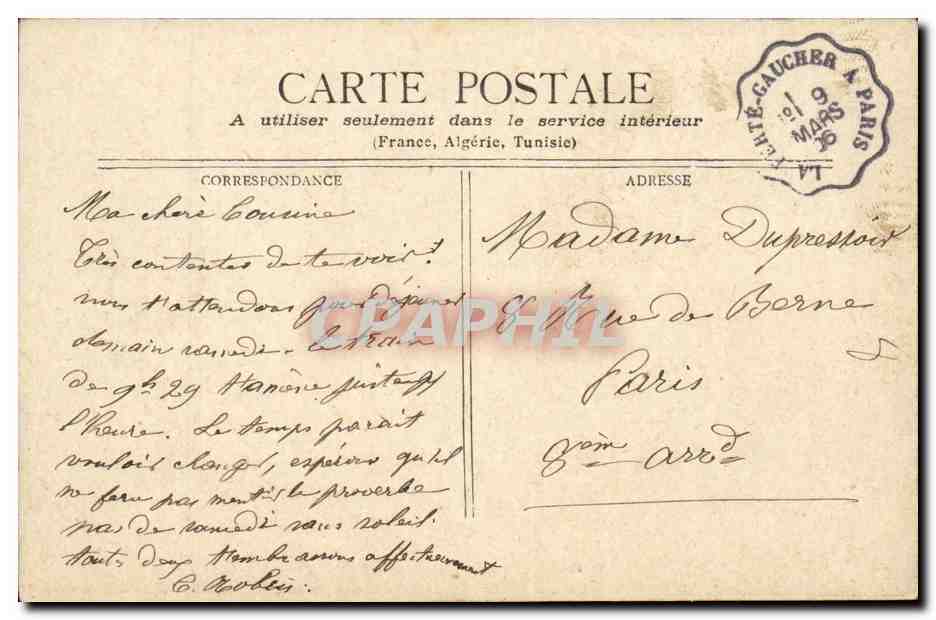 CARTE POSTALE
A utiliser seulement dans le service intérieur
(France, Algérie, Tunisie)
LA FERTÉ-GAUCHER A PARIS
9
MARS
06
CORRESPONDANCE
Ma chère Cousine
Très contentes de te voir.
nous t'attendons pour déjeuner
demain samedi. le train
de 9h 29 t'amène juste
l'heure. Le temps parait
vouloir changer, espérons qu'il
ne fera pas mentir le proverbe
pas de samedi sans soleil.
toutes deux t'embrassons affectueusement
ADRESSE
Madame Dupressoir
8 Rue de Berne
Paris
8ème arrd
CPAPHIL